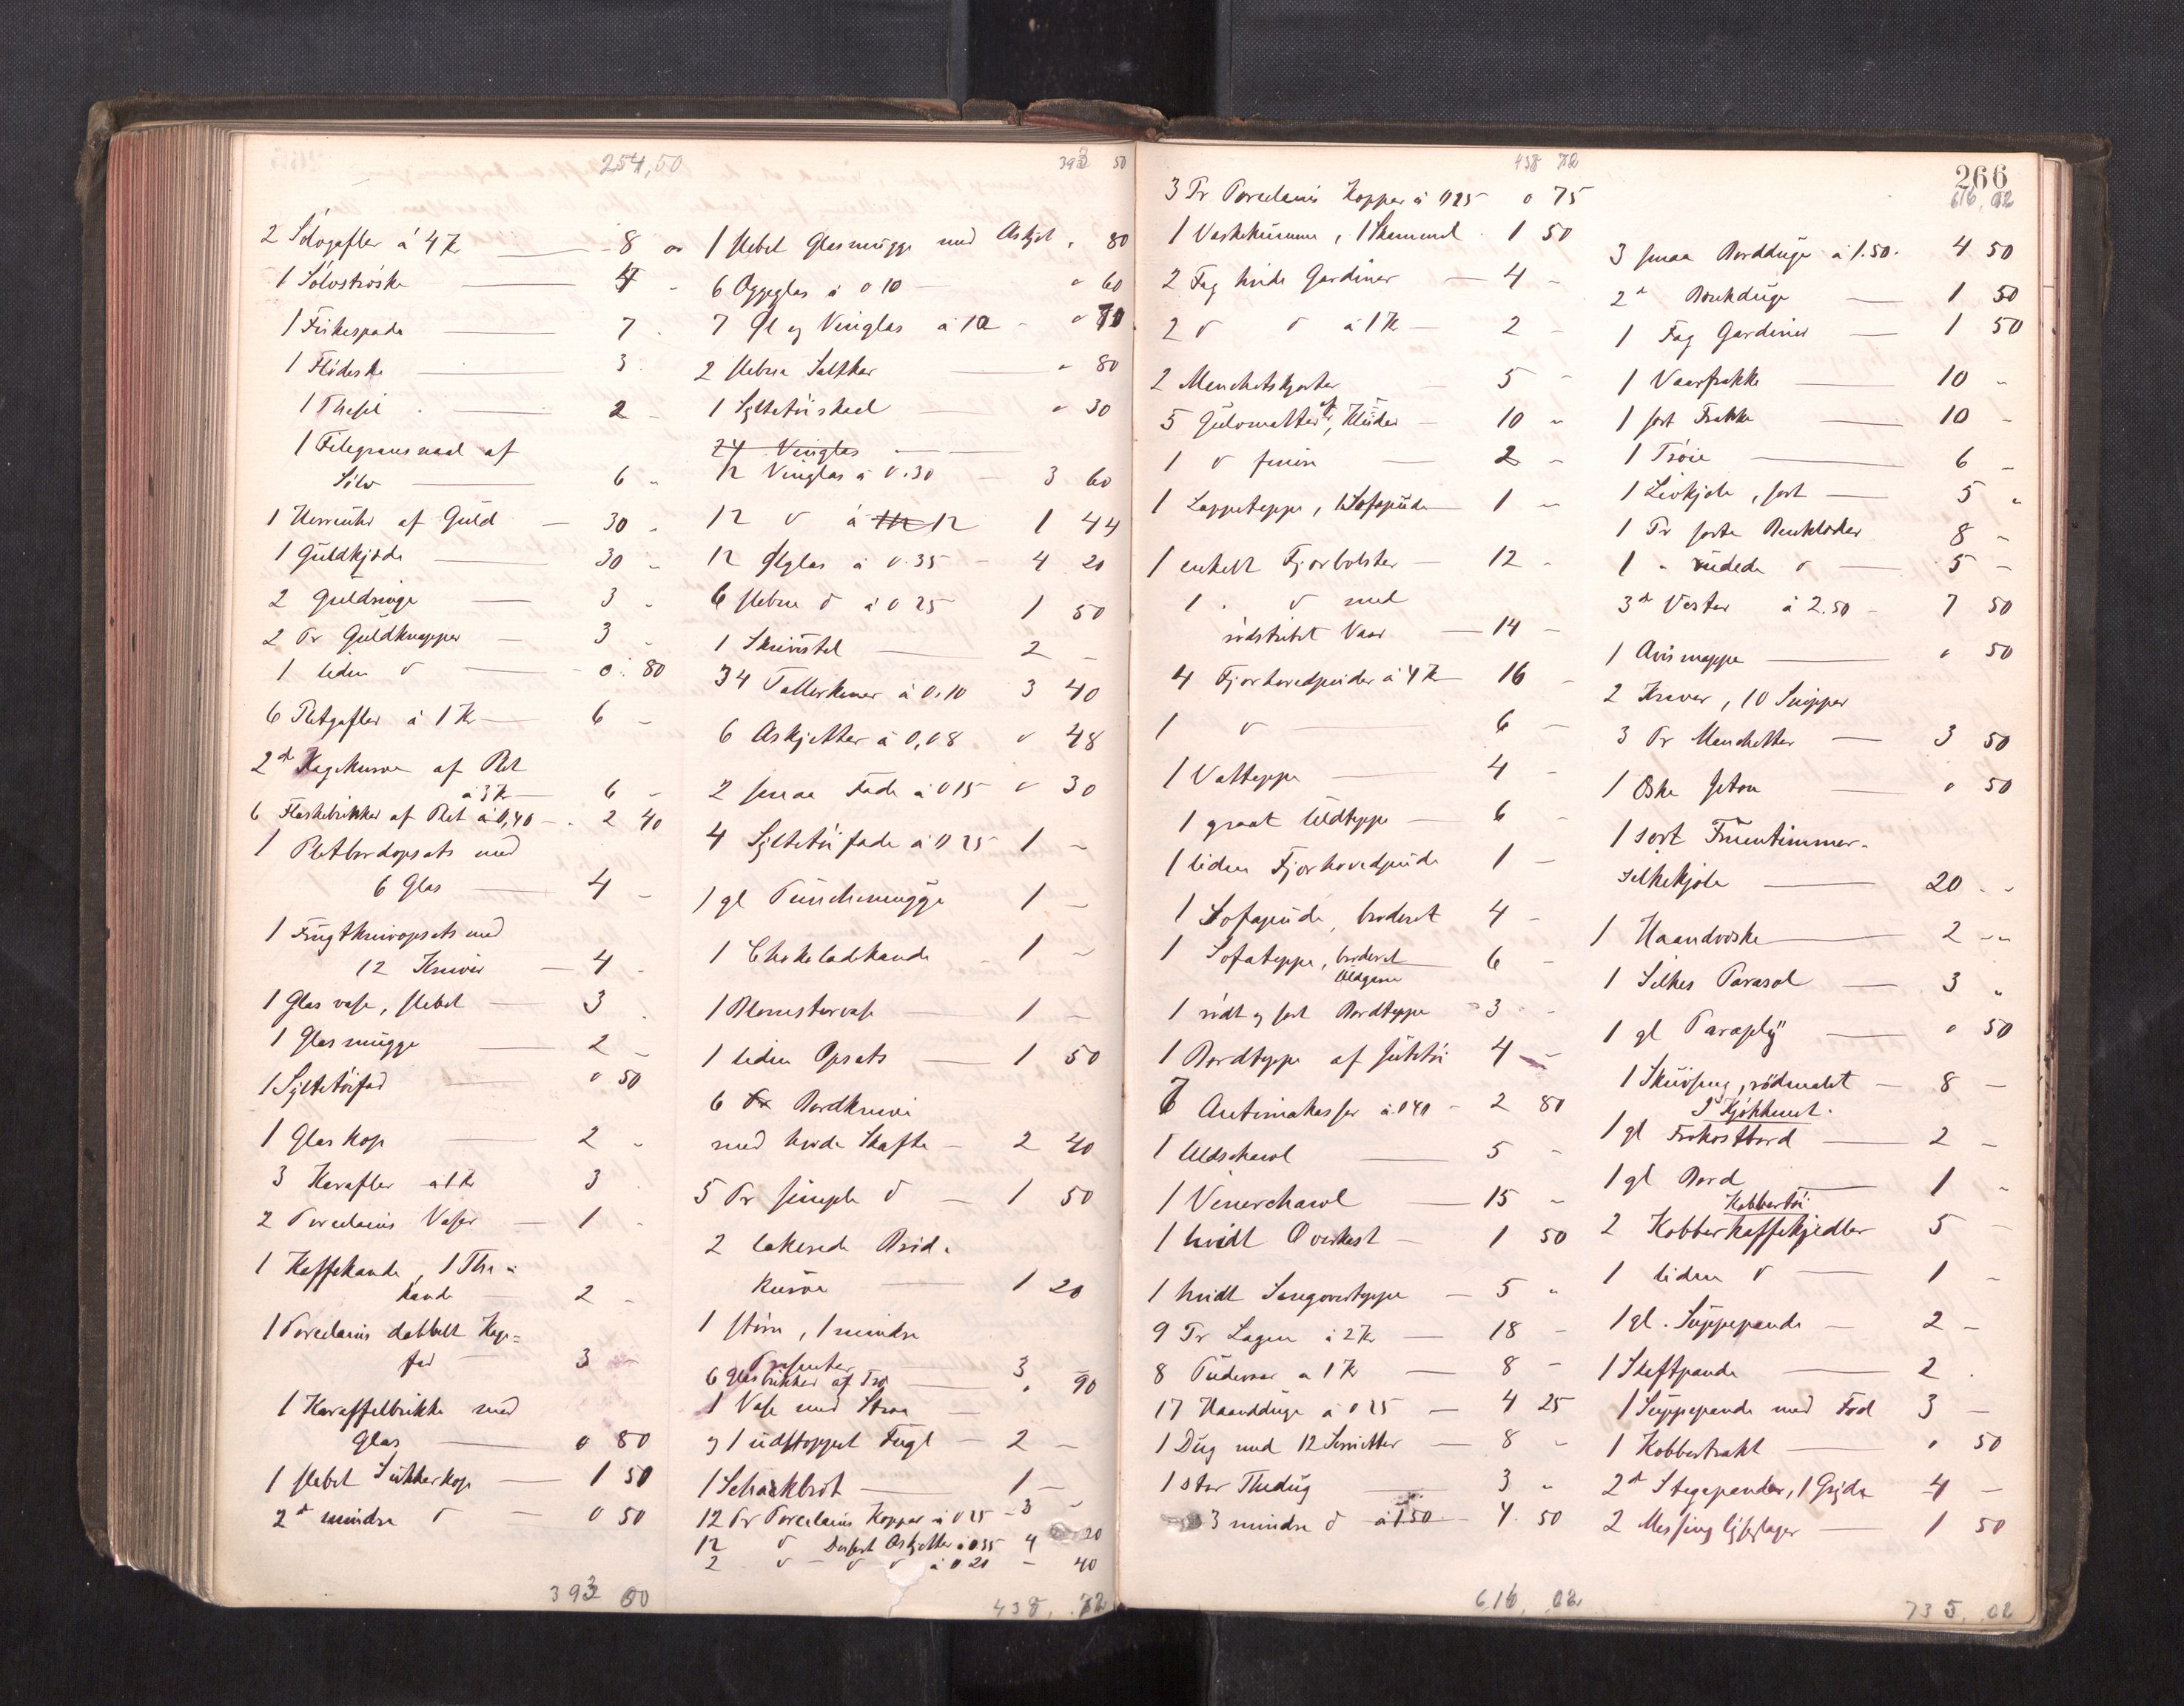 254,50
2 Sølvgafler á 4 Kr — 8 "
1 Sølvströske — 4 -
1 Fiskespade — 7 -
1 Flödeske — 3 -
1 Thesil — 2 -
1 Filegransnaal af
Sölv — 6 -
1 Herreuhr af Guld — 30 -
1 Guldkjæde — 30 -
2 Guldringe — 3 -
2 Pr Guldknapper — 3 -
1 liden d — 0. 80
6 Pletgafler á 1 Kr — 6 -
2 d Kagekurve af Plet
á 3 Kr — 6 -
6 Flaskebrikker af Plet á 0,40 — 2 40
1 Pletbordopsats med
6 Glas — 4 -
1 Frugtknivopsats med
12 Knive — 4 -
1 Glas vase, slebet — 3 -
1 Glas mugge — 2 -
1 Syltetöifad — 0 50
1 Glas kop — 2 -
3 Karafler á 1 Kr 3 -
2 Porcelains Vaser — 1 -
1 Kaffekande, 1 The-
kande — 2 -
1 Porcelains dobbelt Kage-
fad — 3 -
1 Karaffelbrikke med
Glas — 0 80
1 slebet Sukkerkop — 1 50
2 d mindre d — 0 50
393 00
393 50
1 slebet Glasmugge med Askjet " 80
6 Æggeglas á 0 10 — " 60
7 Öl og Vinglas á 10 - " 70
2 slebne Saltkar — " 80
1 Syltetöiskaal — " 30
24 Vinglas —
12 Vinglas á 0.30 — 3 60
12 d á 12 1 44
12 Ölglas á 0.35 - 4 20
6 slebne d á 0 25 1 50
1 Skrivistel — 2 -
34 Tallerkener á 0.10 3 40
6 Askjetter á 0,08 0 48
2 smaa Fade á 0 15 0 30
4 Syltetöi fade á 0 25 1 -
1 gl Punchemugge 1 -
1 Chokoladekande - 1 -
1 Blomstervase — 1 -
1 liden Opsats — 1 50
6 Bordknive
med hvide Skafte - 2 40
5 Pr simple d — 1 50
2 lakerede Bröd-
kurve — 1 20
1 störe, 1 mindre
Presenter — 3 -
6 Glasbrikker af Træ — " 90
1 Vase med Straa —
og 1 udstoppet Fugl — 2 -
1 Schackbrät — 1 -
12 Pr Porcelains Kopper á 0 25 - 3 -
12 d Dessert Askjetter á 0 35 4 20
2 d - d d á 0 20 - 40
438, 72
438 72
3 Pr Porcelains Kopper á 0 25 0 75
1 Vaskekumme, 1 Skammel - 1 50
2 Fag hvide Gardiner — 4 -
2 d d á 1 Kr — 2 -
2 Manchetskjorter - 5 -
5 Gulvmatter af Kluder - 10 "
1 d finere — 2 -
1 Lappeteppe, 1 Sofapude — 1 "
1 enkelt Fjærbolster — 12 -
1 - d med
rödstribet Vaar — 14 -
4 Fjærhovedpuder á 4 Kr — 16 -
1 d — 6 -
1 Vatteppe — 4 -
1 graat Uldteppe — 6 -
1 liden Fjærhovedpude 1 -
1 Sofapude, broderet 4 -
1 Sofateppe, broderet 6 -
Uldgarn
1 rödt og sort Bordteppe 3 -
1 Bordteppe af Jutetöi 4 -
7 Antimakasser á 0 40 - 2 80
1 Uldschawl — 5 -
1 Vienerchawl — 15 "
1 hvidt Overkast — 1 50
1 hvidt Sengeoverteppe — 5 "
9 Pr Lagen á 2 Kr — 18 -
8 Pudevar á 1 Kr — 8 -
17 Haandduge á 0 25 — 4 25
1 Dug med 12 Servietter — 8 -
1 stor Thedug — 3 "
3 mindre d á 1 50 — 4. 50
616, 02
266
616, 02
3 smaa Bordduge á 1.50. 4 50
2 d Brukduge — 1 50
1 Fag Gardiner — 1 50
1 Vaarfrakke — 10 "
1 sort Frakke — 10 -
1 Tröie — 6 -
1 Livkjole, sort — 5 "
1 Pr sorte Benklæder 8 -
1 " rudede d — 5 -
3 d Vester á 2.50 - 7 50
1 Avismappe — " 50
2 Kraver, 10 Snipper
3 Pr Manchetter — 3 50
1 Æske Jeton — " 50
1 sort Fruentimmer-
silkekjole — 20 - -
1 Haandvæske — 2 - "
1 Silkes Parasol — 3 "
1 gl Paraply — " 50
1 Skuvseng, rödmalet — 8 -
I Kjökkenet.
1 gl Frokostbord — 2 -
1 gl Bord — 1 -
Kobbertöi
2 Kobberkaffekjedler 5 -
1 liden d — 1 -
1 gl. Suppepande — 2 -
1 Skaftpande — 2 -
1 Suppepande med Fod 3 -
1 Kobbertrakt — " 50
2 d Stegepander, 1 Gryde 4 -
2 Messing lysestager — 1 50
735, 02